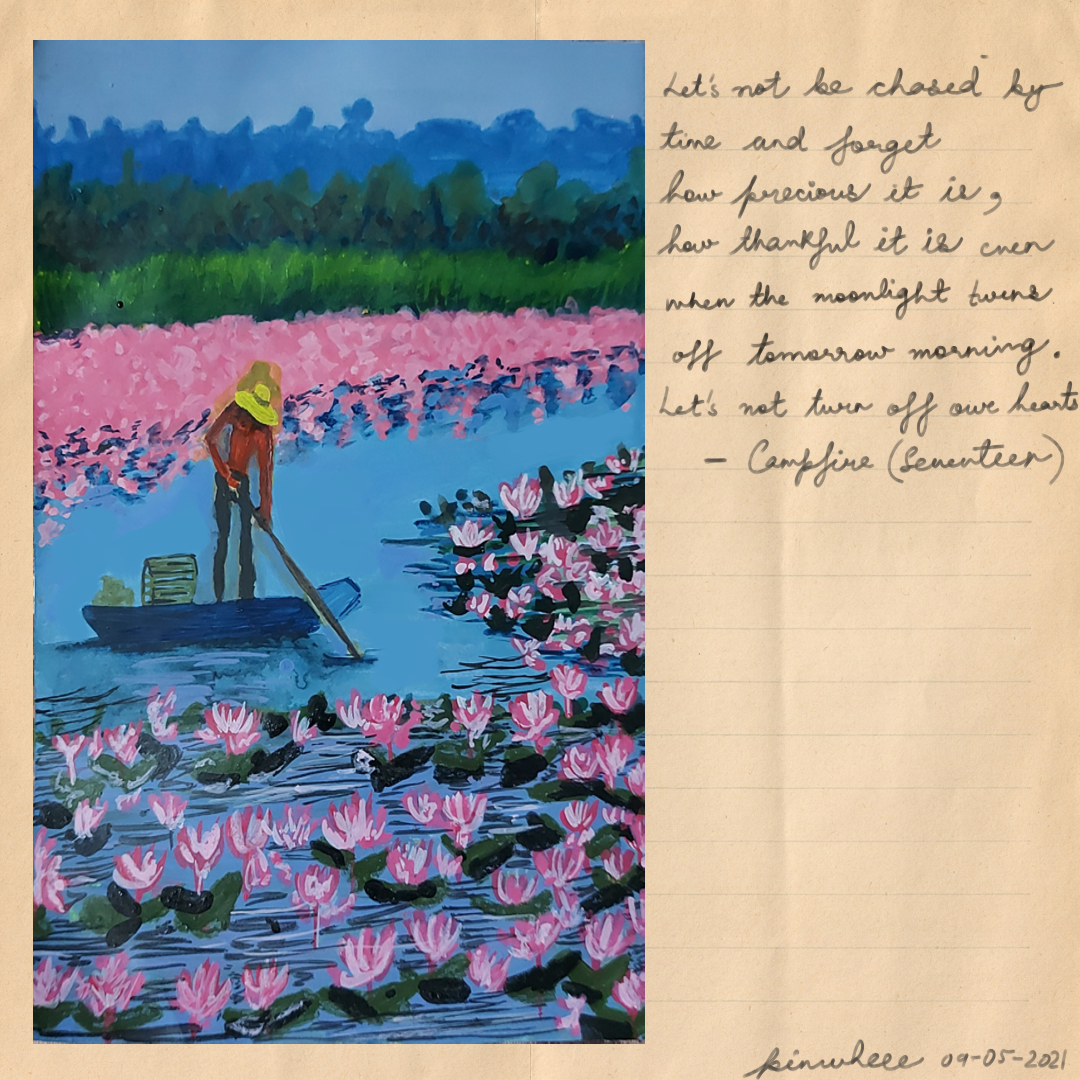 Let's not be chased by
time and forget
how precious it is,
how thankful it is even
when the moonlight turns
off tomorrow morning.
Let's not turn off our hearts
- Campfire (Seventeen)
pinwheee 09-05-2021